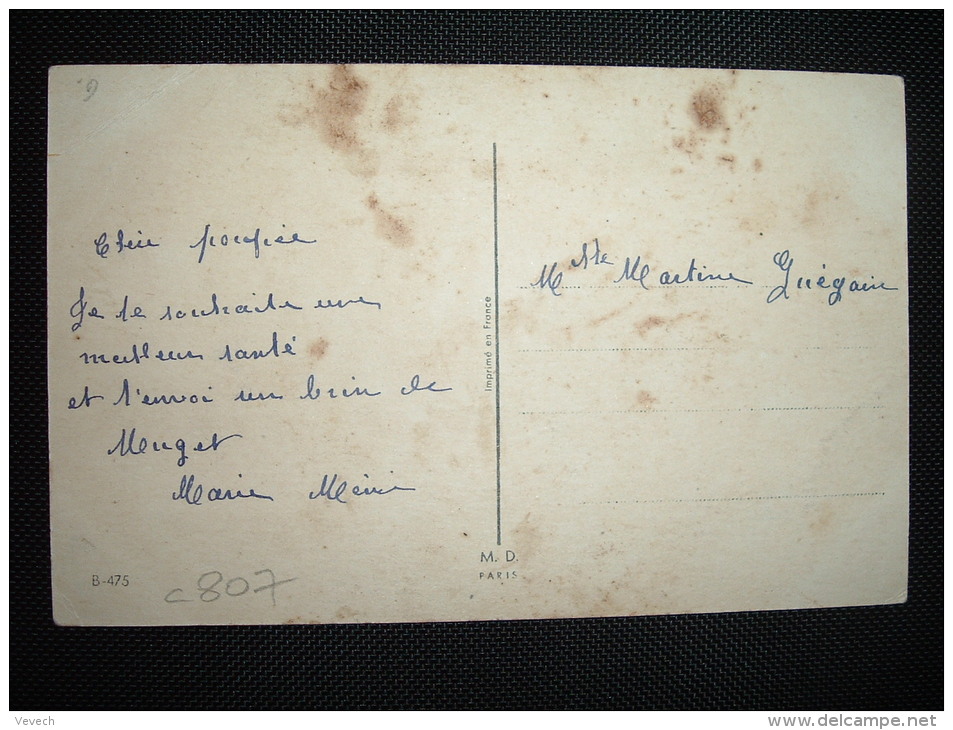 Chère poupée
Je te souhaite une
meilleur santé
et t'envoi un brin de
Muguet
Marie Mémé
B-475
c 807
Imprimé en France
M. D.
PARIS
Mlle Martine Guégain
Vevech
www.delcampe.net